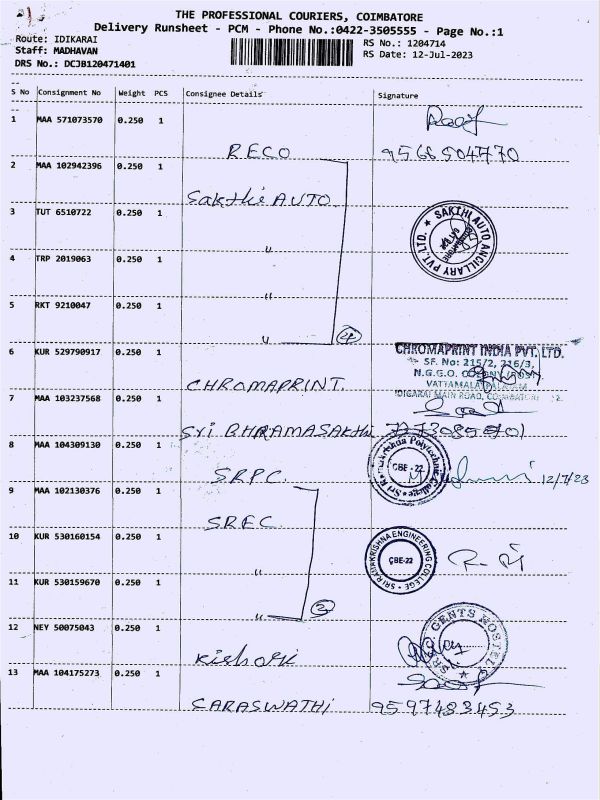 THE PROFESSIONAL COURIERS, COIMBATORE
Delivery Runsheet - PCM - Phone No.:0422-3505555 - Page No.:1
Route: IDIKARAI
RS No.: 1204714
Staff: MADHAVAN
RS Date: 12-Jul-2023
DRS No.: DCJB120471401
S No Consignment No Weight PCS Consignee Details Signature
1 MAA 571073570 0.250 1
RECO 9566504770
2 MAA 102942396 0.250 1
Sakthi AUTO
3 TUT 6510722 0.250 1
SAKTHI AUTO ANCILLARY PVT. LTD.
"
4 TRP 2019063 0.250 1
"
5 RKT 9210047 0.250 1
" 4
6 KUR 529790917 0.250 1
CHROMAPRINT INDIA PVT. LTD.
SF. No: 215/2, 216/3,
N.G.G.O.
CHROMAPRINT.
7 MAA 103237568 0.250 1
MAIN ROAD,
Sri BHRAMASAKthi
8 MAA 104309130 0.250 1
Sri Ramakrishna Polytechnic College
CBE - 22
SRPC. 12/7/23
9 MAA 102130376 0.250 1
SREC.
10 KUR 530160154 0.250 1
SRI RAMAKRISHNA ENGINEERING COLLEGE
CBE-22
"
11 KUR 530159670 0.250 1
" 3
12 NEY 50075043 0.250 1
GENTS HOSTEL
Kishore
13 MAA 104175273 0.250 1
SARASWATHI 9597483453